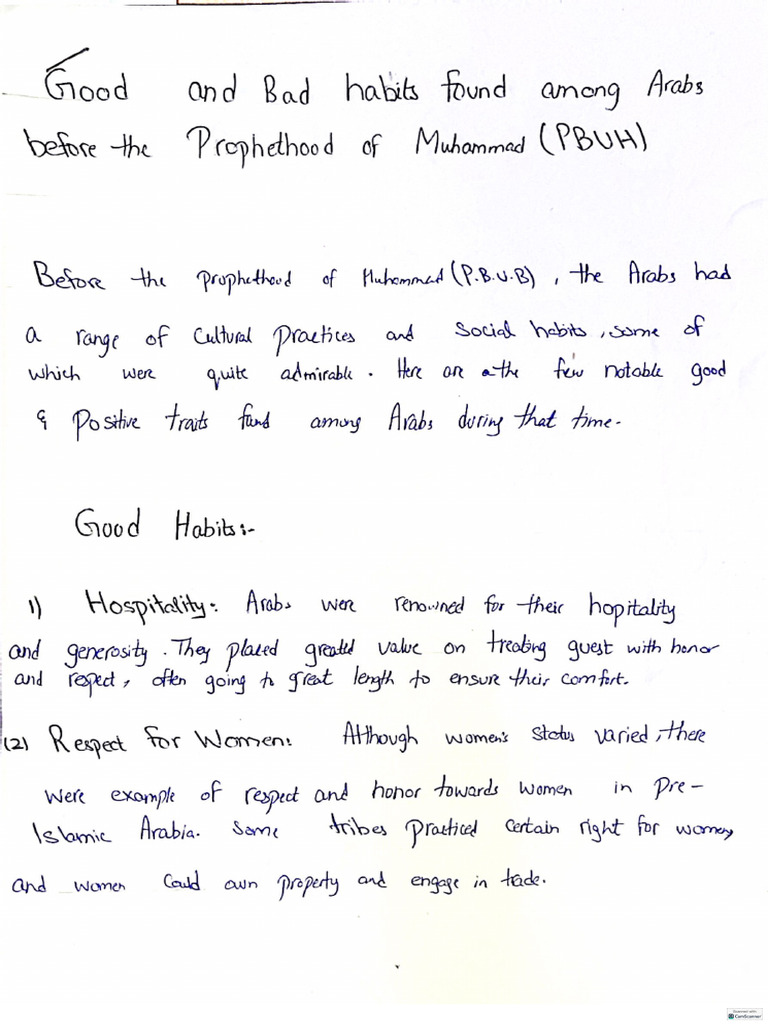 Good and Bad habits found among Arabs
before the Prophethood of Muhammad (PBUH)
Before the prophethood of Muhammad (P.B.U.B), the Arabs had
a range of Cultural Practices and Social habits, some of
which were quite admirable. Here are the few notable good
& Positive traits fund among Arabs during that time.
Good Habits:-
1) Hospitality: Arabs were renowned for their hopitality
and generosity. They placed greated value on treating guest with honor
and respect, often going to great length to ensure their comfort.
(2) Respect for Women: Although women's status varied, there
were example of respect and honor towards women in Pre-
Islamic Arabia. Some tribes practiced certain right for women,
and women could own property and engage in trade.
Scanned with
CamScanner